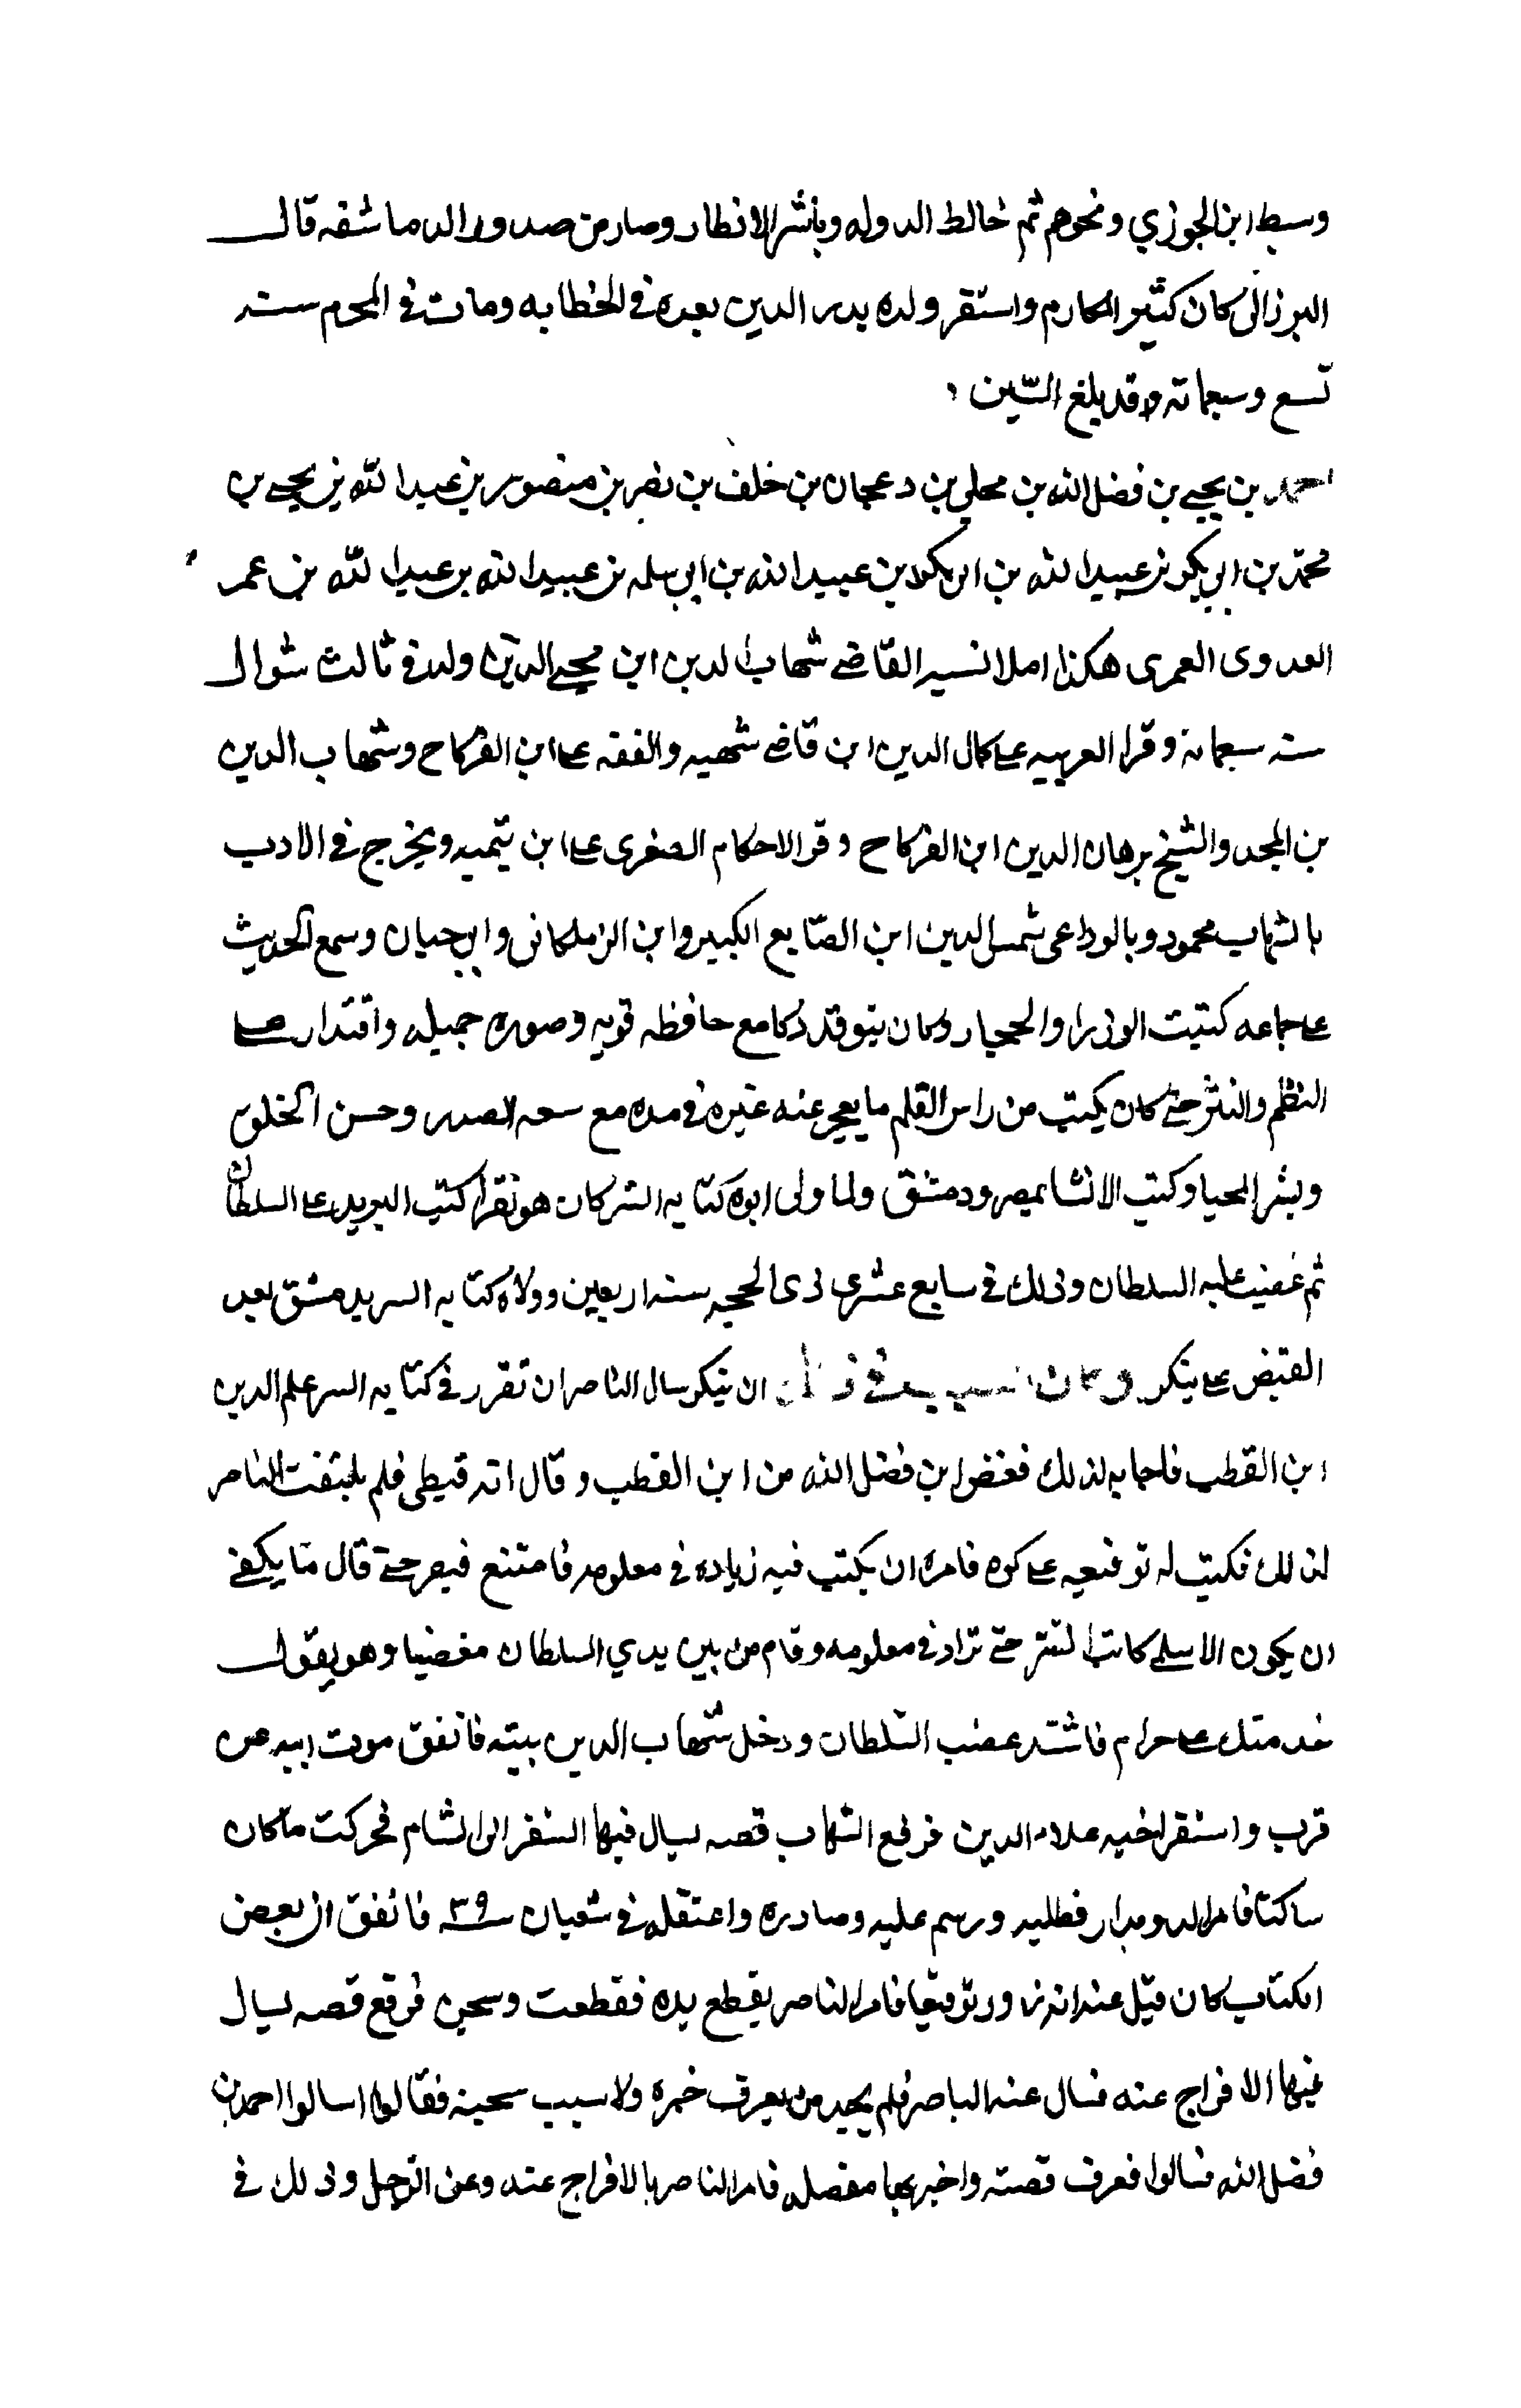 وسبط ابن الجوزي ونحوهم ثم خالط الدوله وباشر الانظار وصار من صدور الدماشقه قال
البرزالى كان كثير المكارم واستقر ولده بدر الدين بعده في الخطابه ومات في المحرم سنه
تسع وسبعمائة وقد بلغ الستين
احمد بن يحيى بن فضل الله بن محلي بن دعجان بن خلف بن نصر بن منصور بن عبيد الله بن يحيى بن
محمد بن ابي بكر بن عبيد الله بن ابي بكر بن عبيد الله بن ابي سلمه بن عبيد الله بن عبيد الله بن عمر
العدوى العمرى هكذا املا نسبه القاضي شهاب الدين ابن محيي الدين ولد في ثالث شوال
سنه سبعمائة وقرا العربيه على كمال الدين ابن قاضي شهبه والفقه على ابن الفركاح وشهاب الدين
بن المجد والشيخ برهان الدين ابن الفركاح وقرا الاحكام الصغرى على ابن تيميه وتخرج في الادب
بالشهاب محمود وبالوداعي شمس الدين ابن الصايغ الكبير وابن الزملكاني وابي حيان وسمع الحديث
على جماعه كست الوزرا والحجار وكان يتوقد ذكا مع حافظه قويه وصوره جميله واقتدار على
النظم والنثر حتى كان يكتب من راس القلم ما يعجز عنه غيره في مده مع سعه الصدر وحسن الخلق
وبشر المحيا وكتب الانشا بمصر ودمشق ولما ولى ابوه كتابه السر كان هو يقرا كتب البريد على السلطان
ثم غضب عليه السلطان وذلك في سابع عشرى ذى الحجه سنه اربعين وولاه كتابه السر بدمشق بعد
القبض على تنكز وكان السبب في ذلك ان تنكز سال الناصر ان تقرر في كتابه السر علم الدين
ابن القطب فاجابه لذلك فغض ابن فضل الله من ابن القطب وقال انه قبطى فلم يلتفت الناصر
لذلك فكتب له توقيعه على كره فامره ان يكتب فيه زياده في معلومه فامتنع فيصر حتى قال ما يكفي
ان يكون الاسلمي كاتب السر حتى تزاد في معلومه وقام من بين يدي السلطان مغضبا وهو يقول
خدمتك علي حرام فاشتد غضب السلطان ودخل شهاب الدين بيته فاتفق موت ابيه عن
قرب واستقر اخيه علاء الدين فرفع الشهاب قصه يسال فيها السفر الى الشام فحركت ما كان
ساكنا فامر الدويدار فطلبه ورسم عليه وصادره واعتقله في شعبان سنه ٣٩ فاتفق ان بعض
الكتاب كان قيل عنه انه زور توقيعا فامر الناصر بقطع يده فقطعت وسجن فرفع قصه يسال
فيها الافراج عنه فسال عنه الناصر فلم يجد من يعرف خبره ولا سبب سجنه فقالوا اسالوا احمد بن
فضل الله فسالوا فعرف قصته واخبر بها مفصله فامر الناصر بالافراج عنه وعن الرجل وذلك في